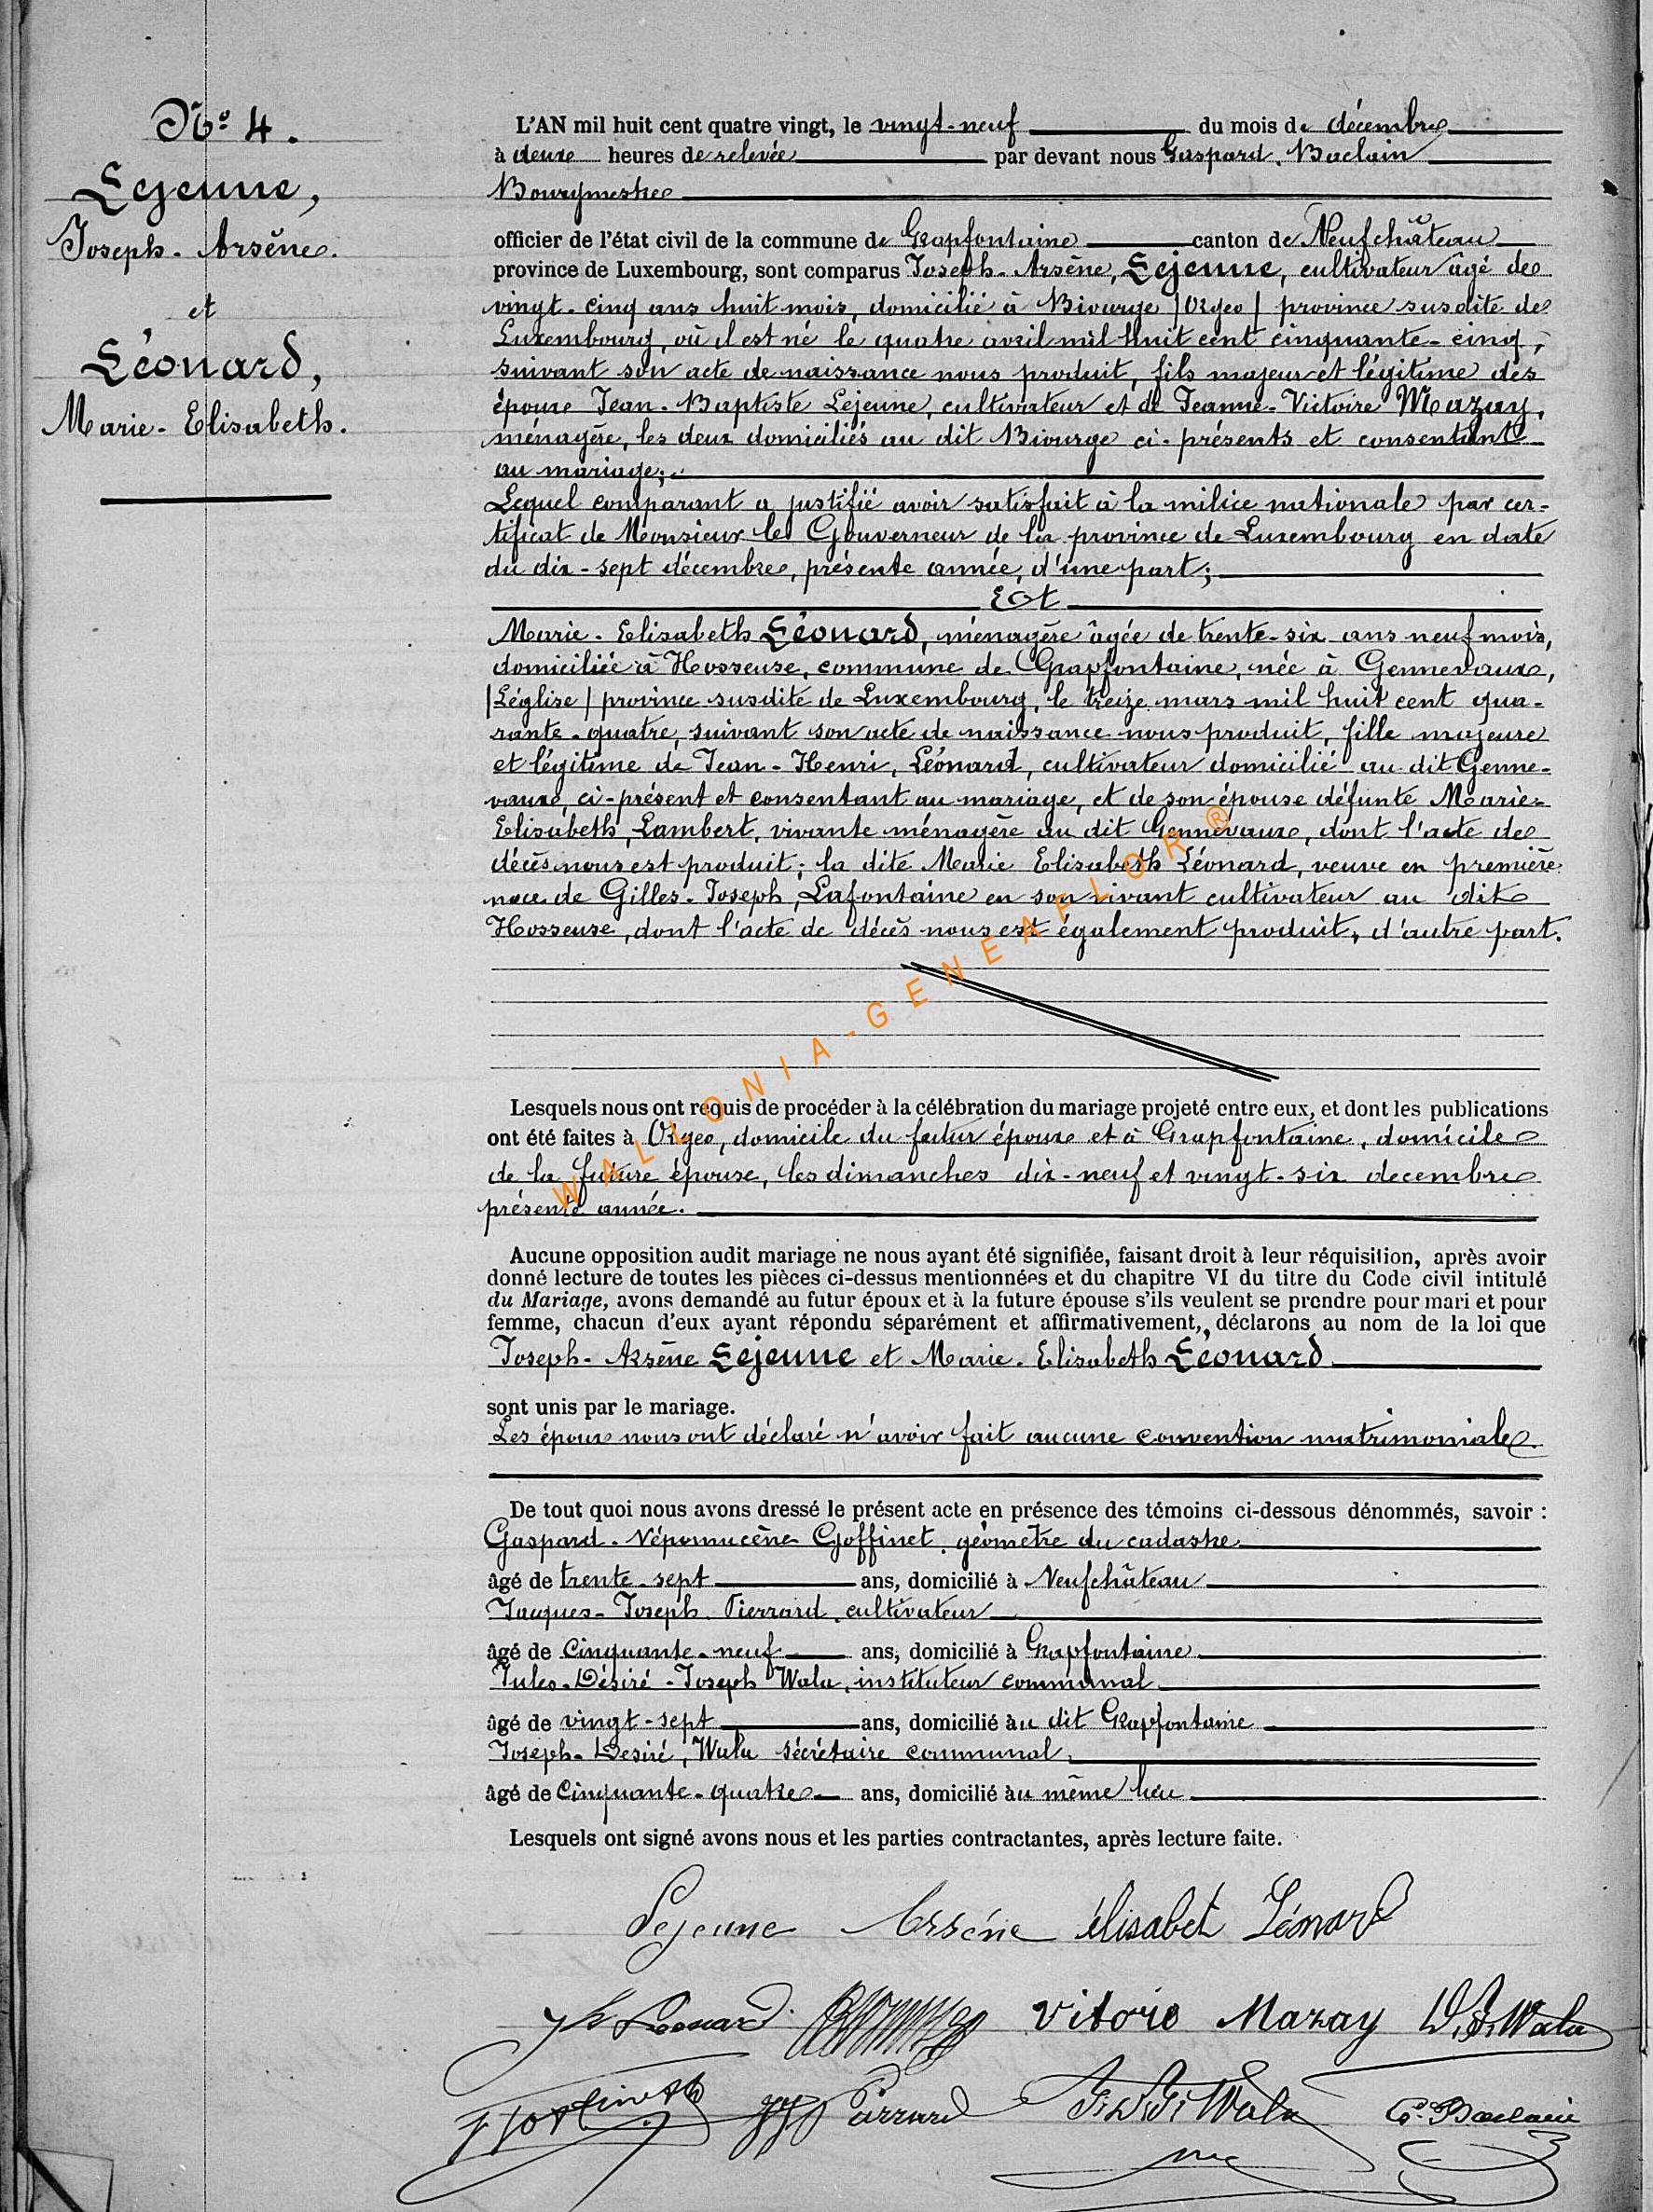 N° 4.
Lejeune,
Joseph-Arsène.
et
Léonard,
Marie-Elisabeth.
L'AN mil huit cent quatre vingt, le vingt-neuf du mois de décembre
à deux heures de relevée par devant nous Gaspard, Baclain
Bourgmestre
officier de l'état civil de la commune de Grapfontaine canton de Neufchâteau
province de Luxembourg, sont comparus Joseph-Arsène, Lejeune, cultivateur âgé de
vingt-cinq ans huit mois, domicilié à Biourge /Orgeo/ province susdite de
Luxembourg, où il est né le quatre avril mil huit cent cinquante-cinq,
suivant son acte de naissance nous produit, fils majeur et légitime des
époux Jean-Baptiste Lejeune, cultivateur et de Jeanne-Victoire Mazay,
ménagère, les deux domiciliés au dit Biourge ci-présents et consentant
au mariage;
Lequel comparant a justifié avoir satisfait à la milice nationale par cer-
tificat de Monsieur le Gouverneur de la province de Luxembourg en date
du dix-sept décembre, présente année, d'une part;
Et
Marie-Elisabeth Léonard, ménagère âgée de trente-six ans neuf mois,
domiciliée à Hosseuse, commune de Grapfontaine, née à Gennevaux,
/Léglise/ province susdite de Luxembourg, le treize mars mil huit cent qua-
rante-quatre, suivant son acte de naissance nous produit, fille majeure
et légitime de Jean-Henri, Léonard, cultivateur domicilié au dit Genne-
vaux, ci-présent et consentant au mariage, et de son épouse défunte Marie-
Elisabeth, Lambert, vivante ménagère au dit Gennevaux, dont l'acte de
décès nous est produit; la dite Marie Elisabeth Léonard, veuve en première
noce de Gilles-Joseph, Lafontaine en son vivant cultivateur au dit
Hosseuse, dont l'acte de décès nous est également produit, d'autre part.
WALLONIA-GENEAFLOR®
Lesquels nous ont requis de procéder à la célébration du mariage projeté entre eux, et dont les publications
ont été faites à Orgeo, domicile du futur époux et à Grapfontaine, domicile
de la future épouse, les dimanches dix-neuf et vingt-six decembre
présente année.
Aucune opposition audit mariage ne nous ayant été signifiée, faisant droit à leur réquisition, après avoir
donné lecture de toutes les pièces ci-dessus mentionnées et du chapitre VI du titre du Code civil intitulé
du Mariage, avons demandé au futur époux et à la future épouse s'ils veulent se prendre pour mari et pour
femme, chacun d'eux ayant répondu séparément et affirmativement, déclarons au nom de la loi que
Joseph-Arsène Lejeune et Marie-Elisabeth Léonard
sont unis par le mariage.
Les époux nous ont déclaré n'avoir fait aucune convention matrimoniale.
De tout quoi nous avons dressé le présent acte en présence des témoins ci-dessous dénommés, savoir :
Gaspard-Népomucène Goffinet, géomètre du cadastre
âgé de trente-sept ans, domicilié à Neufchâteau
Jacques-Joseph Pierrard, cultivateur
âgé de cinquante-neuf ans, domicilié à Grapfontaine
Jules-Désiré-Joseph Wala, instituteur communal
âgé de vingt-sept ans, domicilié au dit Grapfontaine
Joseph-Desiré, Wala sécrétaire communal
âgé de cinquante-quatre ans, domicilié au même lieu
Lesquels ont signé avons nous et les parties contractantes, après lecture faite.
Lejeune Arséne élisabet Léonard
JH Léonard Vitorie Mazay D. J. Wala
JJ Pierrard J. D. J. Wala G. Baclain